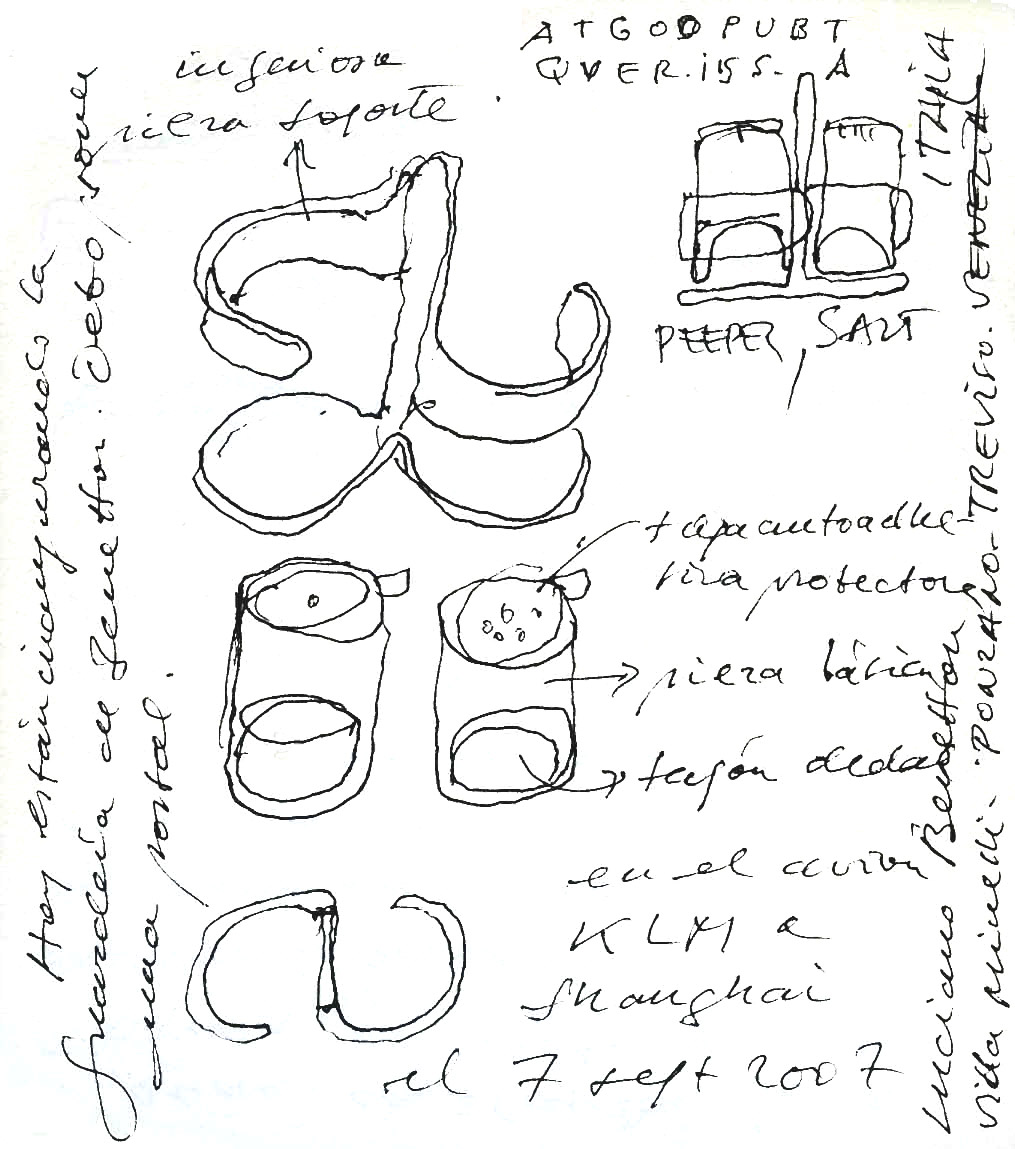 ATGODPUBT
QVER.ISS. A
ingeniosa
pieza soporte
PEEPER, SALT
tapa autoadhe-
siva protectora
pieza básica
tapón dedal
en el avión
KLM a
Shanghai
el 7 sept 2007
Hoy están inaugurando la
guardería de Benetton. Debo
una postal.
Luciano Benetton
villa minelli. PONZANO-TREVISO. VENEZIA
ITALIA